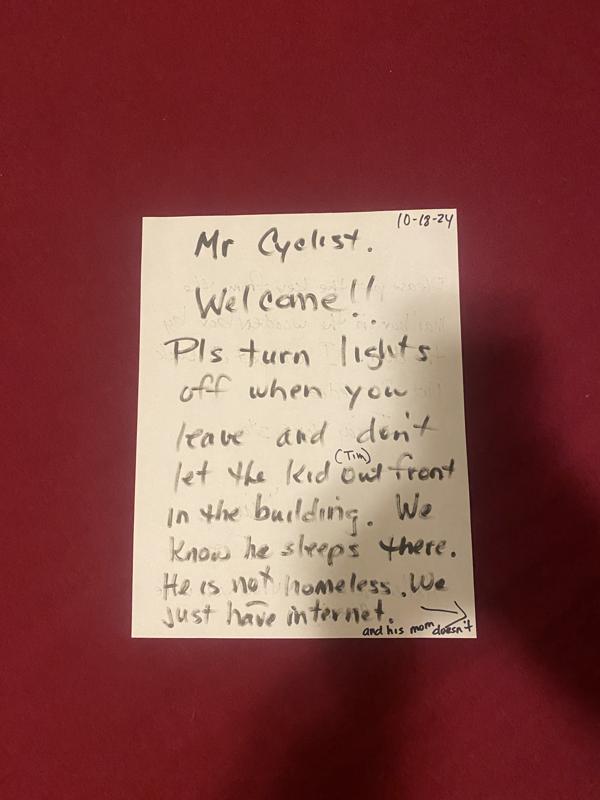 10-18-24
Mr Cyclist.
Welcome!!
Pls turn lights
off when you
leave and don't
let the kid (Tim) out front
in the building. We
know he sleeps there.
He is not homeless. We
just have internet.
and his mom doesn't